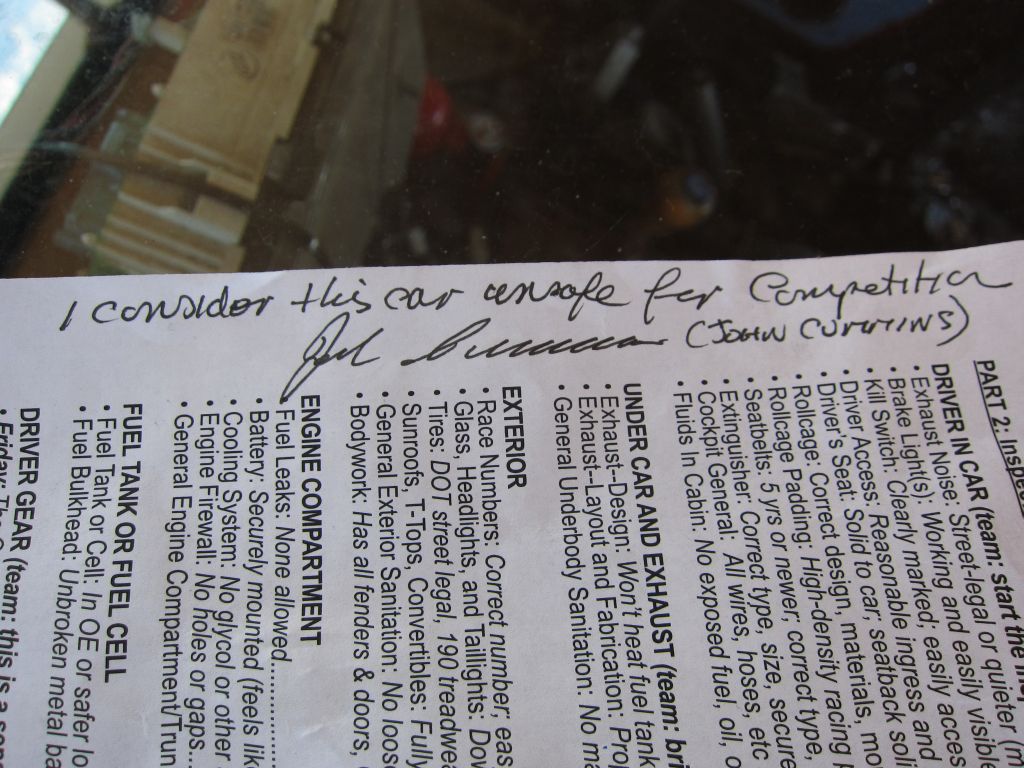 I consider this car unsafe for Competition
John Cummins (JOHN CUMMINS)
PART 2: Inspec
DRIVER IN CAR (team: start the
• Exhaust Noise: Street-legal or quieter (m
• Brake Light(s): Working and easily visible
• Kill Switch: Clearly marked; easily acces
• Driver Access: Reasonable ingress and
• Driver's Seat: Solid to car, seatback soli
• Rollcage: Correct design, materials, mo
• Rollcage Padding: High-density racing
• Seatbelts: 5 yrs or newer; correct type,
• Extinguisher: Correct type, size, secure
• Cockpit General: All wires, hoses, etc
• Fluids In Cabin: No exposed fuel, oil, o
UNDER CAR AND EXHAUST (team: bri
• Exhaust--Design: Won't heat fuel tank
• Exhaust--Layout and Fabrication: Prop
• General Underbody Sanitation: No ma
EXTERIOR
• Race Numbers: Correct number; eas
• Glass, Headlights, and Taillights: Dov
• Tires: DOT street legal, 190 treadwea
• Sunroofs, T-Tops, Convertibles: Fully
• General Exterior Sanitation: No loose
• Bodywork: Has all fenders & doors,
ENGINE COMPARTMENT
• Fuel Leaks: None allowed...........
• Battery: Securely mounted (feels lik
• Cooling System: No glycol or other
• Engine Firewall: No holes or gaps...
• General Engine Compartment/Trun
FUEL TANK OR FUEL CELL
• Fuel Tank or Cell: In OE or safer lo
• Fuel Bulkhead: Unbroken metal ba
DRIVER GEAR (team: this is a
• Friday: The